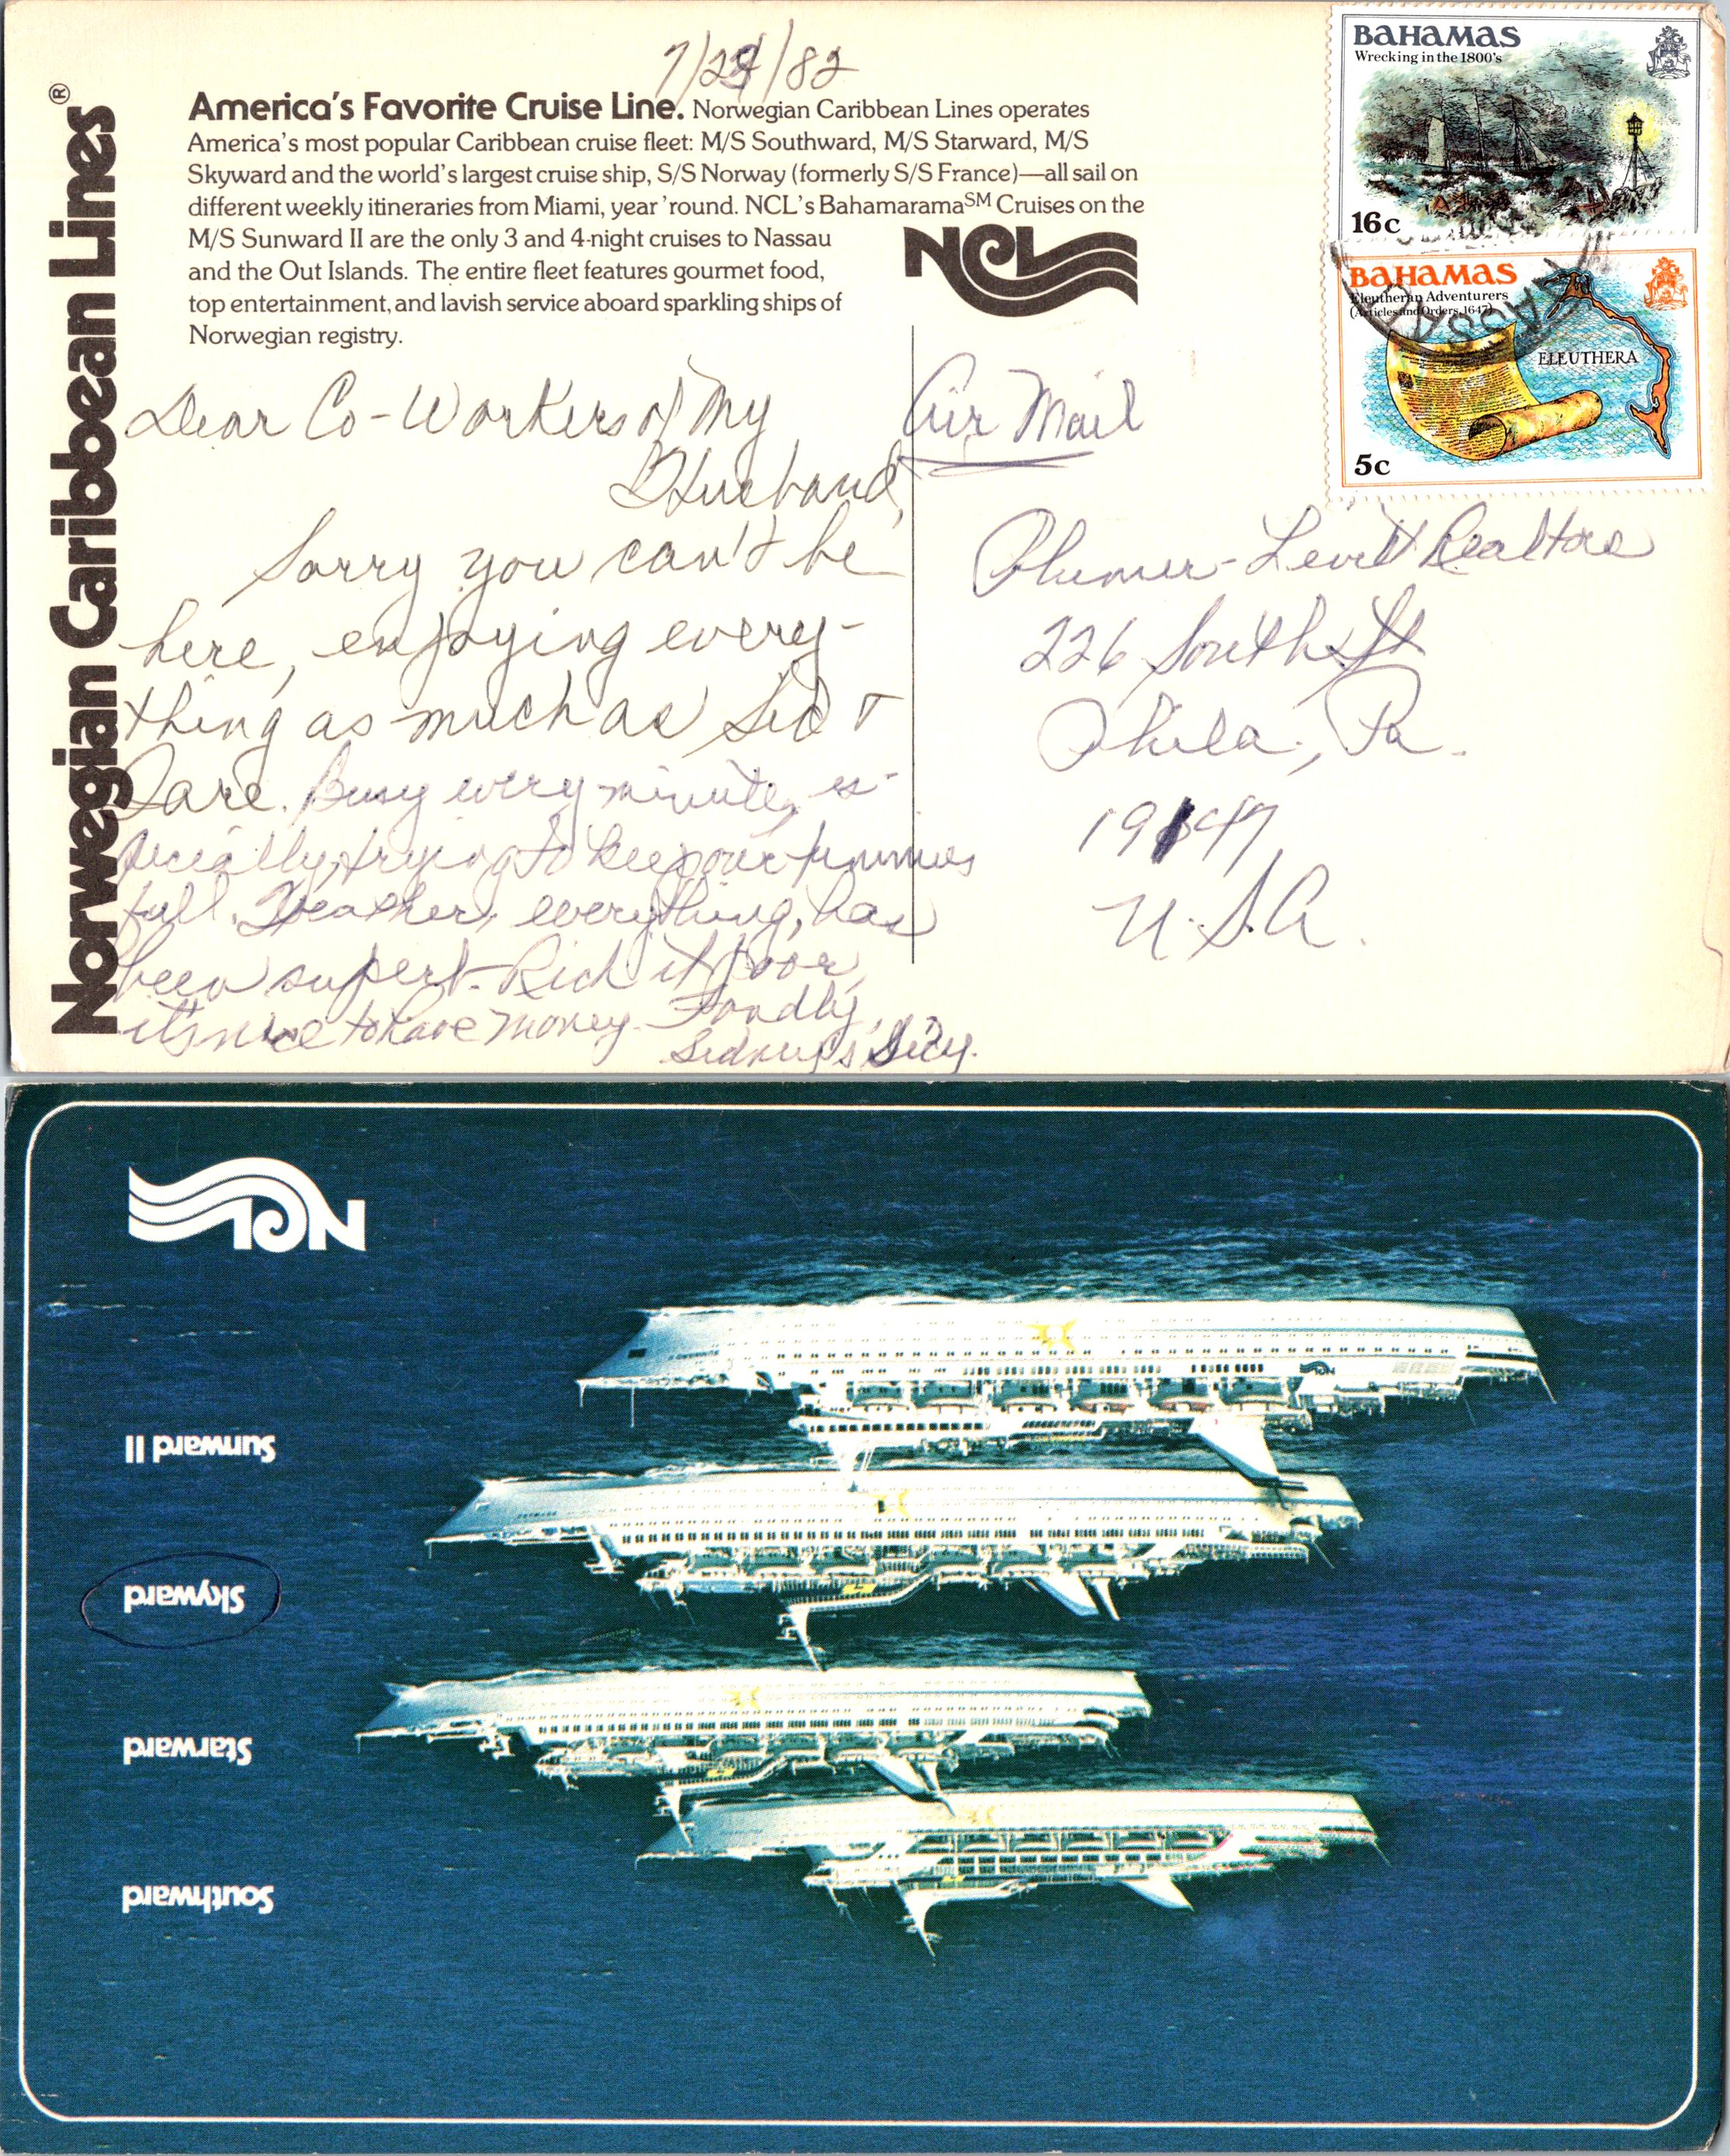 7/24/82
Norwegian Caribbean Lines®
America's Favorite Cruise Line. Norwegian Caribbean Lines operates
America's most popular Caribbean cruise fleet: M/S Southward, M/S Starward, M/S
Skyward and the world's largest cruise ship, S/S Norway (formerly S/S France)—all sail on
different weekly itineraries from Miami, year 'round. NCL's Bahamarama℠ Cruises on the
M/S Sunward II are the only 3 and 4-night cruises to Nassau
and the Out Islands. The entire fleet features gourmet food,
top entertainment, and lavish service aboard sparkling ships of
Norwegian registry.
NCL
BAHAMAS
Wrecking in the 1800's
16c
BAHAMAS
Eleutheran Adventurers
(Articles and Orders, 1647)
ELEUTHERA
5c
NASSAU
Dear Co-Workers of My
Husband,
Sorry you can't be
here, enjoying every-
thing as much as Sid &
I are. Busy every minute, es-
pecially trying to keep our tummies
full. Weather, everything, has
been superb. Rich it poor,
it's nice to have money. Fondly,
Sidney's
Air Mail
Plumer-Levitt Realtors
226 South St
Phila., Pa.
19147
U.S.A.
NCL
Sunward II
Skyward
Starward
Southward